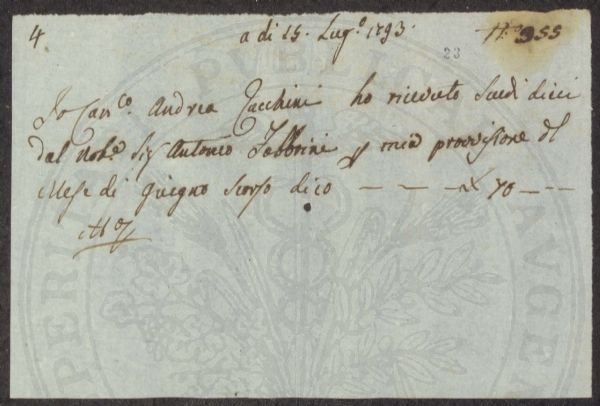 4 a di 15. Lug.º 1793. 23 N.º 355
Io Can.co Andrea Zucchini ho ricevuto Scudi dieci
dal Nob.e Sig Antonio Fabbrini p mia provvisione del
Mese di Giugno scorso dico — — — 10 — —
PUBLICAE AUGE
PERI